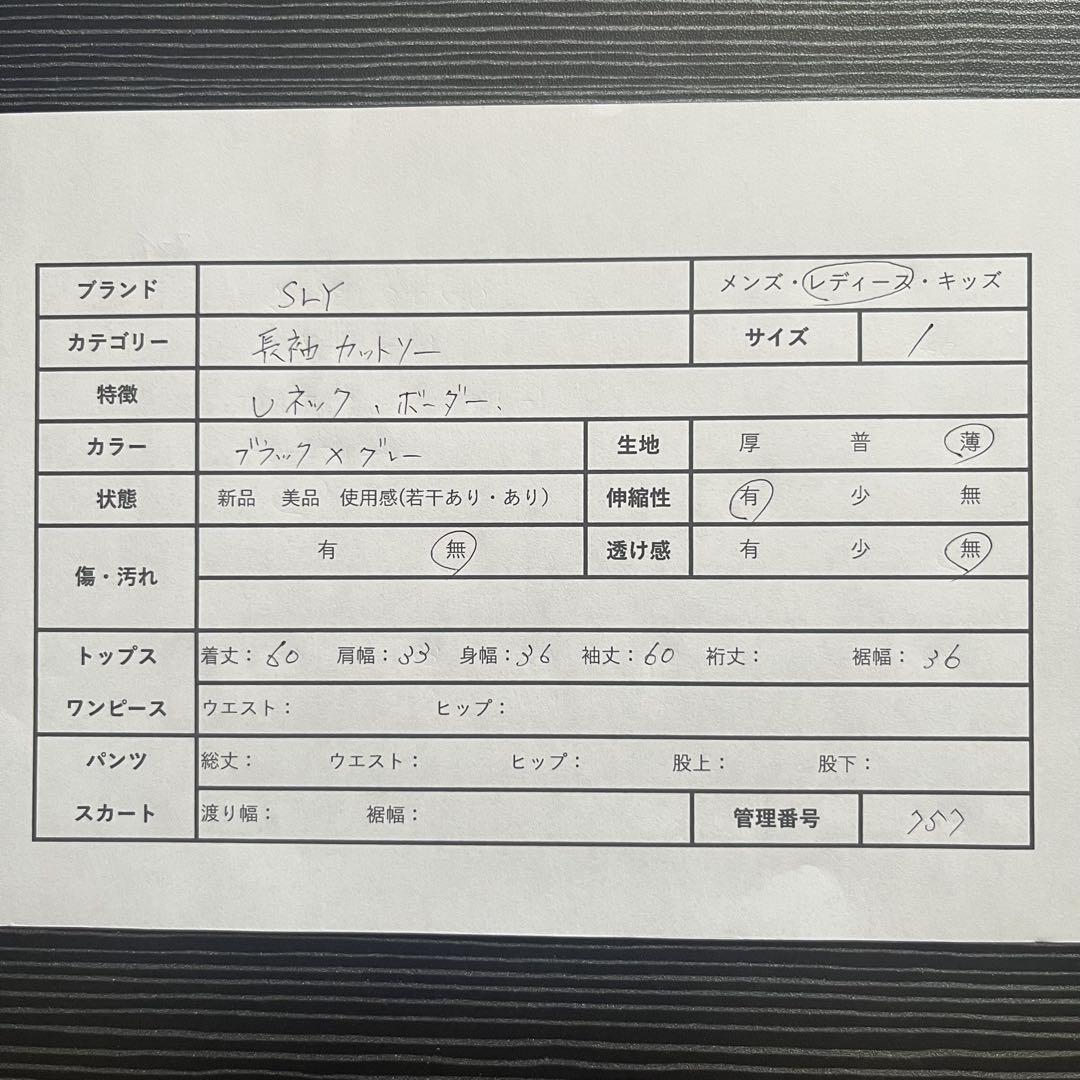 ブランド SLY メンズ・レディース・キッズ
カテゴリー 長袖 カットソー サイズ 1
特徴 Uネック、ボーダー、
カラー ブラック×グレー 生地 厚 普 薄
状態 新品 美品 使用感(若干あり・あり) 伸縮性 有 少 無
傷・汚れ 有 無 透け感 有 少 無
トップス 着丈: 60 肩幅: 33 身幅: 36 袖丈: 60 裄丈: 裾幅: 36
ワンピース ウエスト: ヒップ:
パンツ 総丈: ウエスト: ヒップ: 股上: 股下:
スカート 渡り幅: 裾幅: 管理番号 757